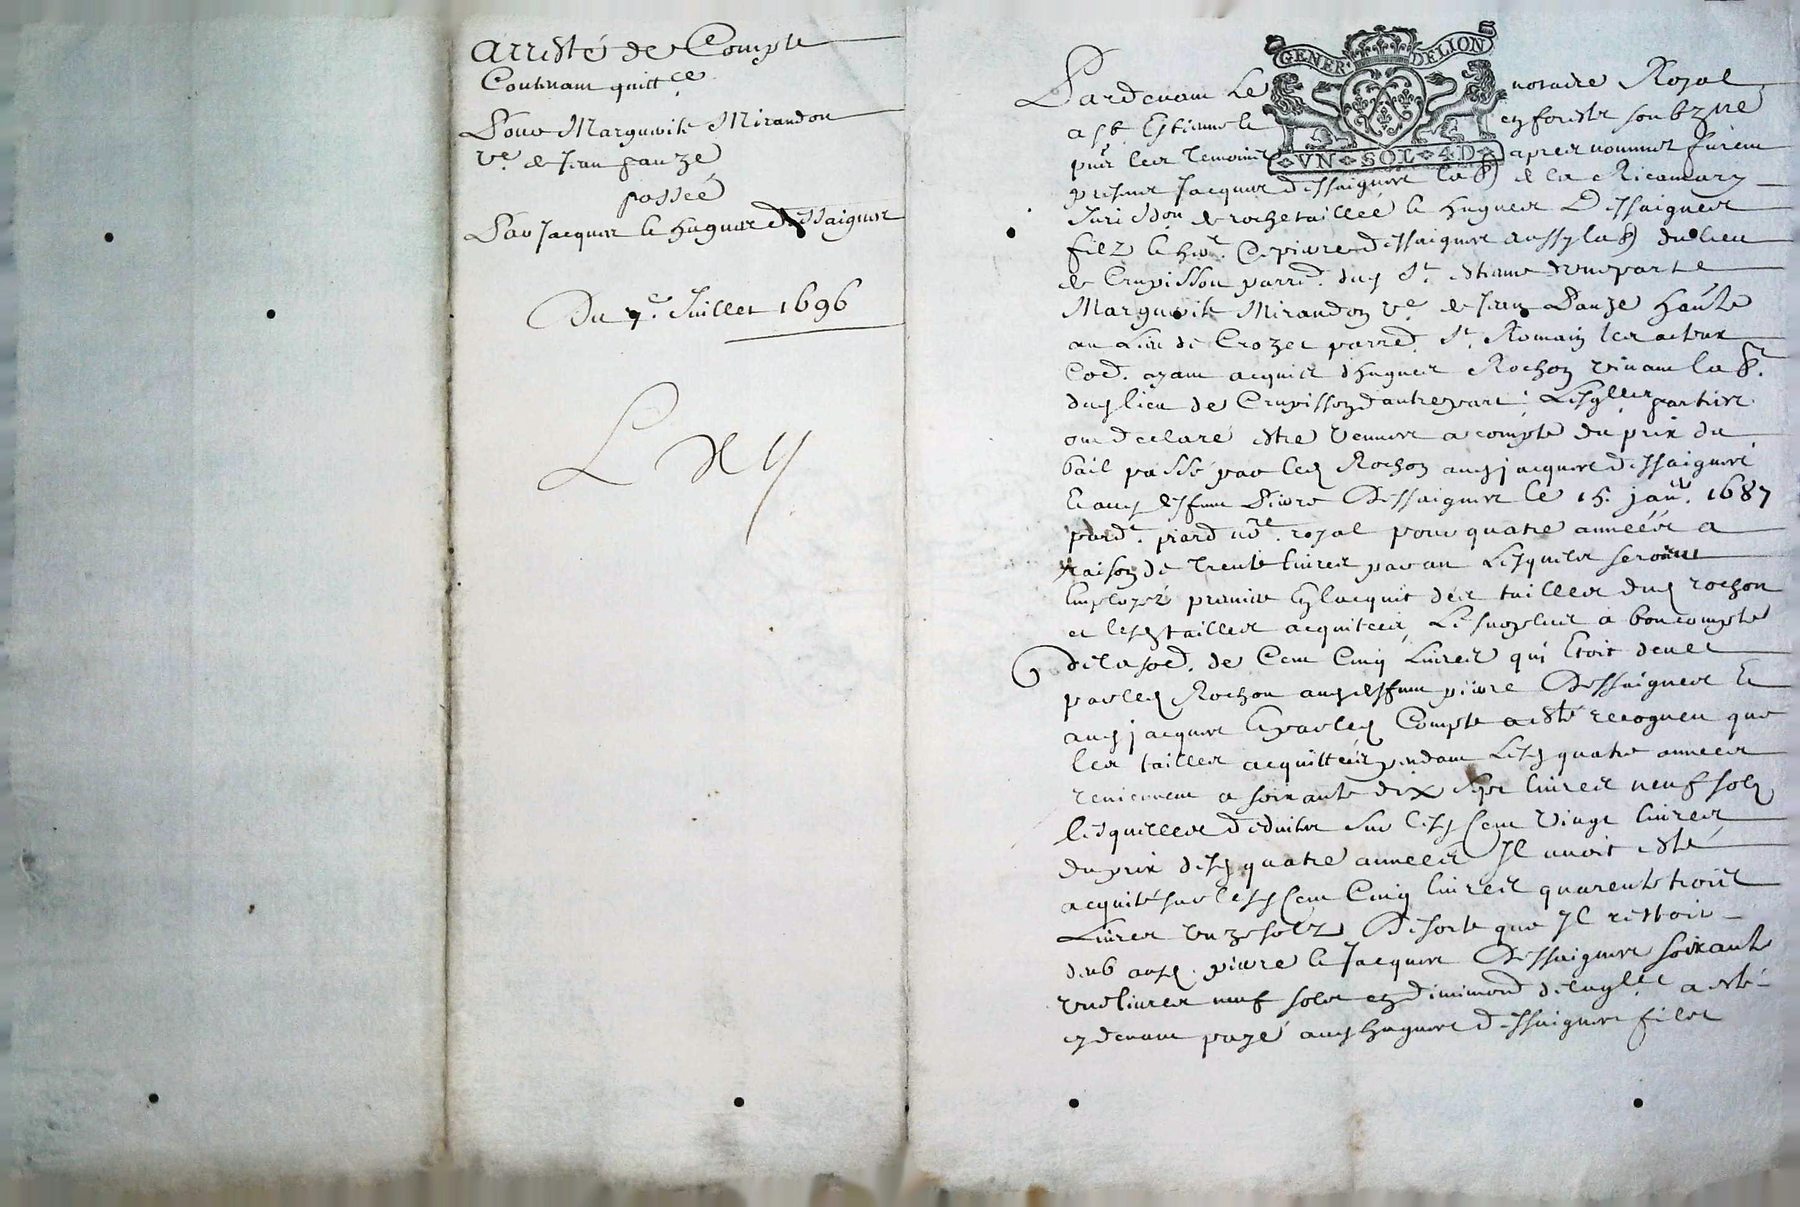 Arresté de Compte
Contenant quitt.ce
Pour Marguerite Mirandon
Ve. de Jean pauze
passée
Par Jacques et hugues dessaignes
Du 7e. Juillet 1696
GENER. DE LION
VN SOL 4D
Pardevant Le notaire Royal
a St Estienne en forestz soubz.né
puis les temoins apres nommes furent
presens Jacques dessaignes lab.r de la Ricamary
Juridon de rochetaillée et hugues Dessaignes
filz et her. de pierre dessaignes aussy lab.r du lieu
de Crupisson parre. dud St. estienne d'une part et
Marguerite Mirandon ve. de Jean Pauze hante
au Lieu de Crozet parre. St. Romain les
ayant acquis d'hugues Rochon vivant lab.r
dud lieu de Crupisson d'autre part; Lesqlles parties
ont declaré estre venues a compte du prix du
bail passé par led Rochon aud jacques dessaignes
Et aud deffunt Pierre Dessaignes le 15. janv. 1687
royal pour quatre années a
raison de trente livres par an Lesquels seroint
Employés premier En lacquit des tailles dud rochon
et lesd tailles acquitees, Le surplus a bon compte
de la so.e de Cent Cinq Livres qui Etoit deue
par led Rochon aud deffunt pierre Dessaignes Et
aud jacques Et par led Compte a esté recogneu que
les tailles acquittées pendant Lesd quatre années
reviennent a soixante dix sept livres neuf solz
lesquelles deduites sur lesd Cent Vingt livres
du prix desd quatre années Il avoit esté
acquité sur lesd Cent Cinq livres quarente trois
Livres unze solz Desorte que Il restoit
deub ausd. pierre et Jacques Dessaignes soixante
une livres neuf solz moitié de laqlle a esté
cy devant payé aud hugues dessaignes filz